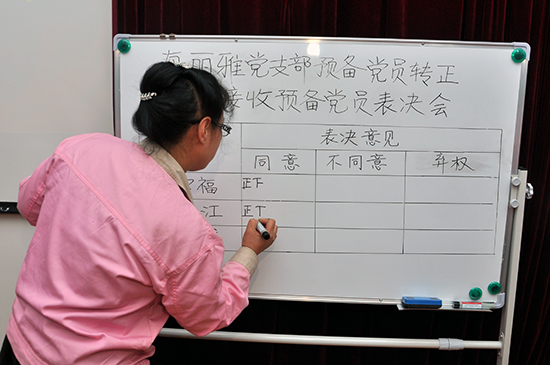 丽雅党支部预备党员转正
接收预备党员表决会
表决意见
同意 不同意 弃权
福 正下
江 正丅